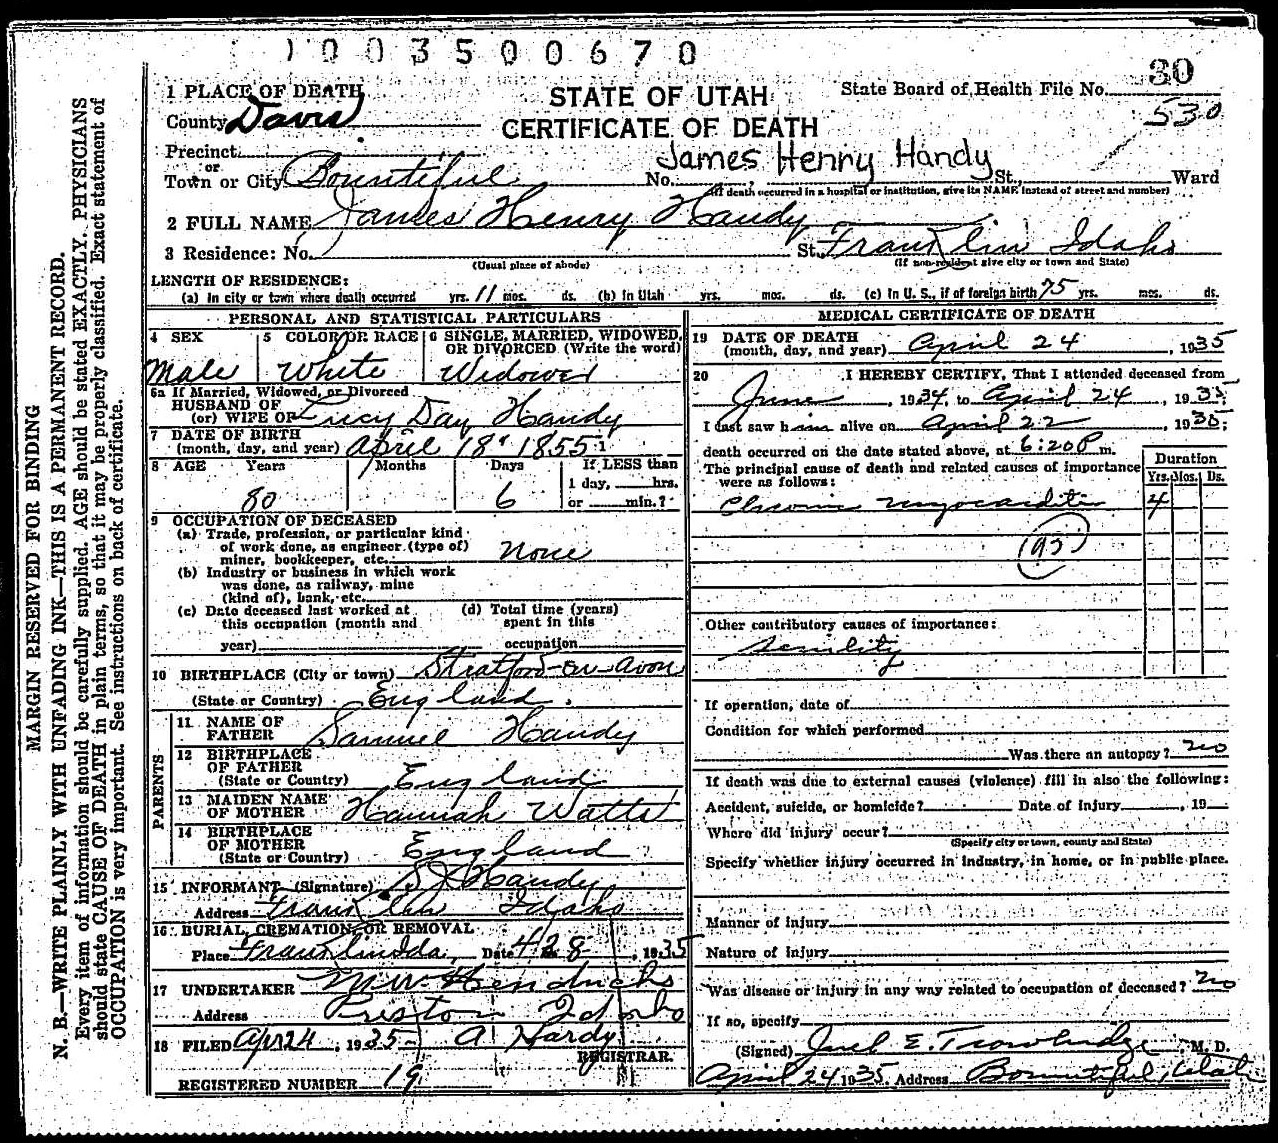 1003500670
30
1 PLACE OF DEATH
STATE OF UTAH
State Board of Health File No.
County Davis
530
CERTIFICATE OF DEATH
Precinct
James Henry Handy
or
Town or City Bountiful No. , St., Ward
(If death occurred in a hospital or institution, give its NAME instead of street and number)
2 FULL NAME James Henry Handy
3 Residence: No. St. Franklin Idaho
(Usual place of abode) (If non-resident give city or town and State)
LENGTH OF RESIDENCE:
(a) In city or town where death occurred yrs. 11 mos. ds. (b) In Utah yrs. mos. ds. (c) In U. S., if of foreign birth 75 yrs. mos. ds.
PERSONAL AND STATISTICAL PARTICULARS
4 SEX
Male
5 COLOR OR RACE
White
6 SINGLE, MARRIED, WIDOWED, OR DIVORCED (Write the word)
Widower
6a If Married, Widowed, or Divorced
HUSBAND OF
(or) WIFE OF Lucy Day Handy
7 DATE OF BIRTH
(month, day, and year) April 18 1855
8 AGE Years Months Days If LESS than
1 day, hrs.
80 6 or min.?
9 OCCUPATION OF DECEASED
(a) Trade, profession, or particular kind
of work done, as engineer (type of)
miner, bookkeeper, etc. none
(b) Industry or business in which work
was done, as railway, mine
(kind of), bank, etc.
(c) Date deceased last worked at
this occupation (month and
year)
(d) Total time (years)
spent in this
occupation
10 BIRTHPLACE (City or town) Stratford-on-Avon
(State or Country) England.
PARENTS
11 NAME OF
FATHER Samuel Handy
12 BIRTHPLACE
OF FATHER
(State or Country) England
13 MAIDEN NAME
OF MOTHER Hannah Watts
14 BIRTHPLACE
OF MOTHER
(State or Country) England
15 INFORMANT (Signature) S J Handy
Address Franklin Idaho
16 BURIAL, CREMATION, OR REMOVAL
Place Franklin Ida, Date 4 28, 1935
17 UNDERTAKER M W Hendricks
Address Preston Idaho
18 FILED Apr 24, 1935 A Hardy
REGISTRAR.
REGISTERED NUMBER 19
MEDICAL CERTIFICATE OF DEATH
19 DATE OF DEATH
(month, day, and year) April 24, 1935
20 I HEREBY CERTIFY, That I attended deceased from
June, 1934, to April 24, 1935;
I last saw him alive on April 22 1935;
death occurred on the date stated above, at 6:20 P m.
The principal cause of death and related causes of importance
were as follows:
Duration
Yrs. Mos. Ds.
Chronic myocarditis 4
(93)
Other contributory causes of importance:
Senility
If operation, date of
Condition for which performed
Was there an autopsy? no
If death was due to external causes (violence) fill in also the following:
Accident, suicide, or homicide? Date of injury , 19
Where did injury occur?
(Specify city or town, county and State)
Specify whether injury occurred in industry, in home, or in public place.
Manner of injury
Nature of injury
Was disease or injury in any way related to occupation of deceased? no
If so, specify
(Signed) E. Trowbridge, M. D.
April 24 1935 Address Bountiful, Utah
MARGIN RESERVED FOR BINDING
N. B.—WRITE PLAINLY WITH UNFADING INK—THIS IS A PERMANENT RECORD.
Every item of information should be carefully supplied. AGE should be stated EXACTLY. PHYSICIANS
should state CAUSE OF DEATH in plain terms, so that it may be properly classified. Exact statement of
OCCUPATION is very important. See instructions on back of certificate.